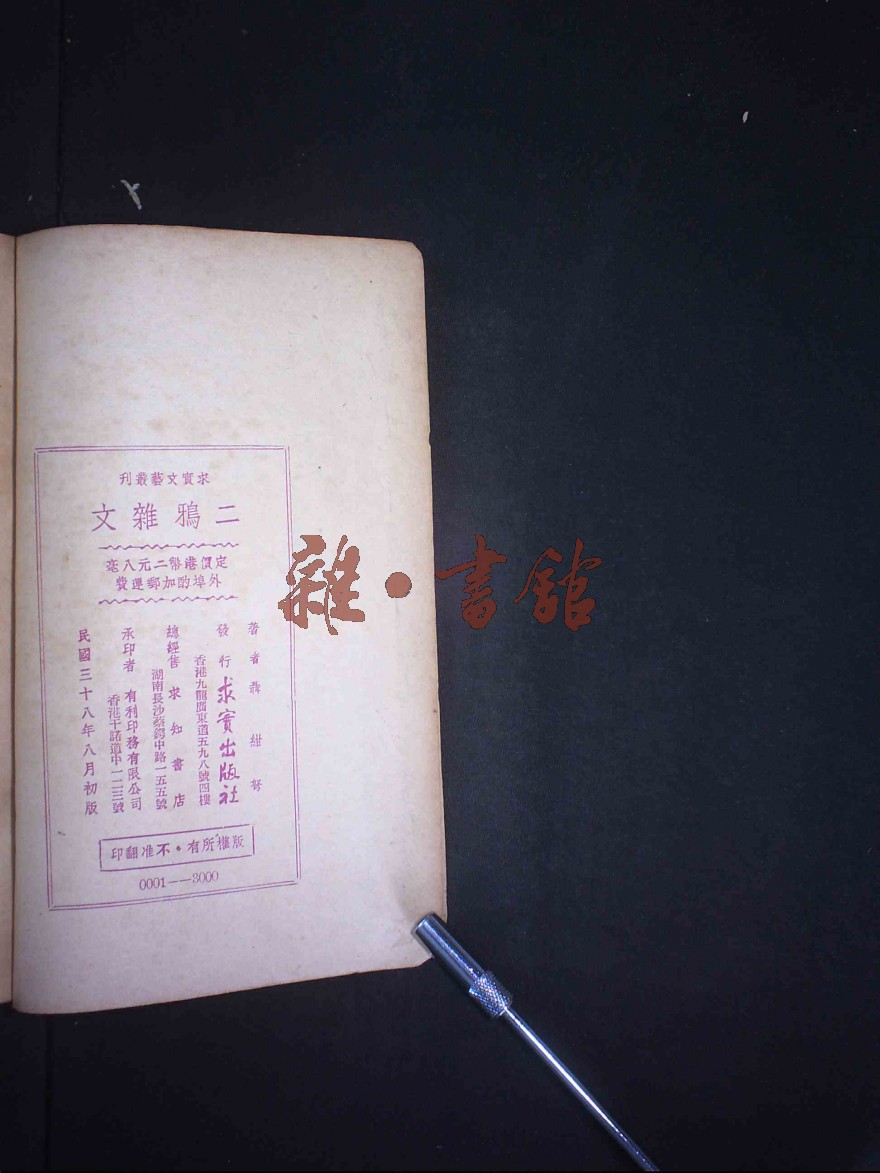 求實文藝叢刊
二鴉雜文
定價港幣二元八毫
外埠酌加郵運費
著者 聶紺弩
發行 求實出版社
香港九龍廣東道五九八號四樓
總經售 求知書店
湖南長沙蔡鍔中路一五五號
承印者 有利印務有限公司
香港干諾道中一二三號
民國三十八年八月初版
版權所有·不准翻印
0001——3000
雜·書館